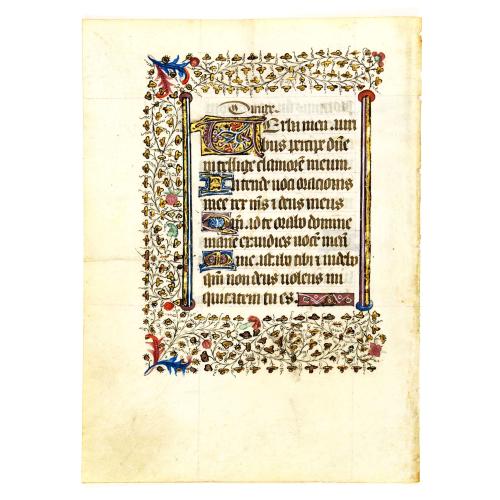 Dirige
Verba mea auri
bus percipe dñe
intellige clamorem meum.
Intende voci oracionis
mee rex mẽs ⁊ deus meus
Qm̃ ad te orabo domine
mane exaudies vocẽ meã
Mane astabo tibi ⁊ videbo
qm̃ non deus volens ini
quitatem tu es